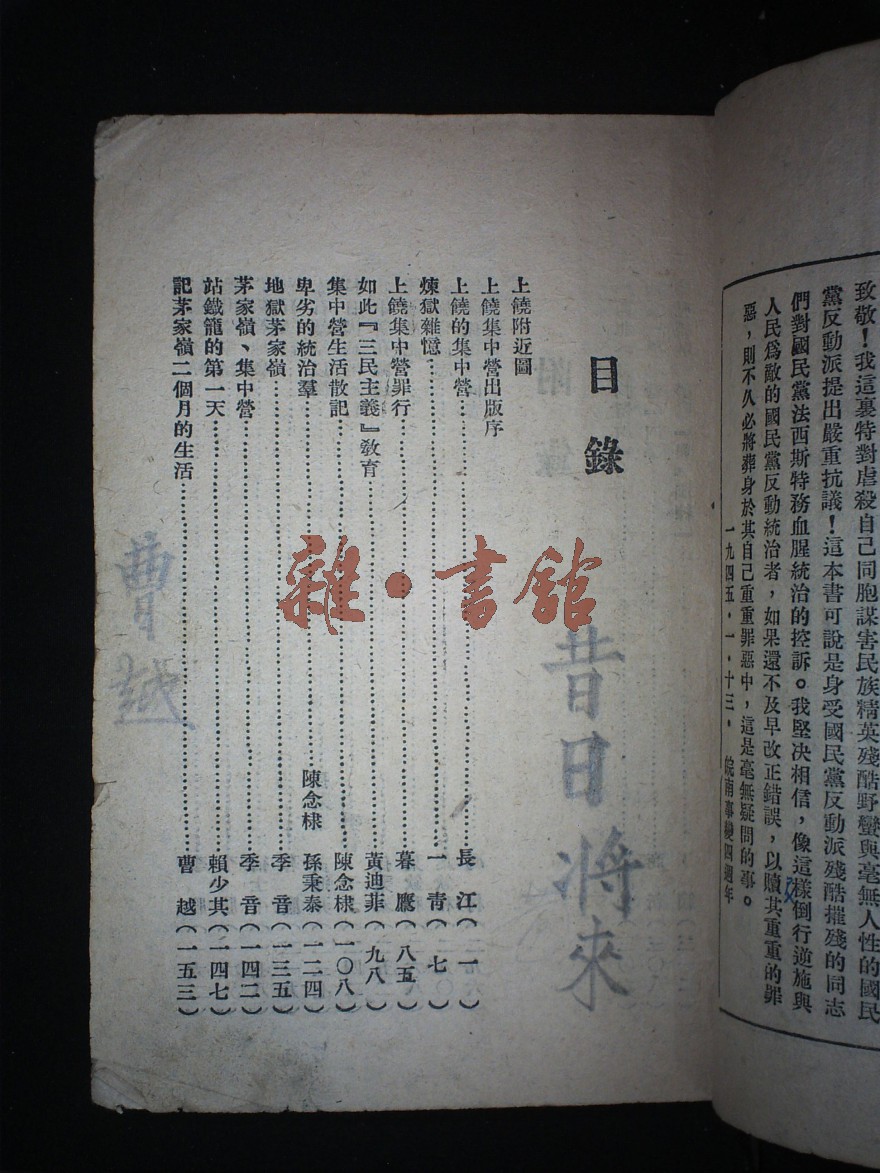 致敬！我這裏特對虐殺自己同胞謀害民族精英殘酷野蠻與毫無人性的國民
黨反動派提出嚴重抗議！這本書可說是身受國民黨反動派殘酷摧殘的同志
們對國民黨法西斯特務血腥統治的控訴。我堅决相信，像這樣倒行逆施與
人民爲敵的國民黨反動統治者，如果還不及早改正錯誤，以贖其重重的罪
惡，則不久必將葬身於其自己重重罪惡中，這是毫無疑問的事。
一九四五・一・十三・皖南事變四週年
目錄
上饒附近圖
上饒集中營出版序
上饒的集中營……長江(一)
煉獄雜憶……一青(七)
上饒集中營罪行……暮鷹(八五)
如此『三民主義』敎育……黃迪菲(九八)
集中營生活散記……陳念棣(一〇八)
卑劣的統治羣……陳念棣 孫秉泰(一二四)
地獄茅家嶺……季音(一三五)
茅家嶺、集中營……季音(一四二)
站鐵籠的第一天……賴少其(一四七)
記茅家嶺二個月的生活……曹越(一五三)
昔日將來
曹越
雜・書館